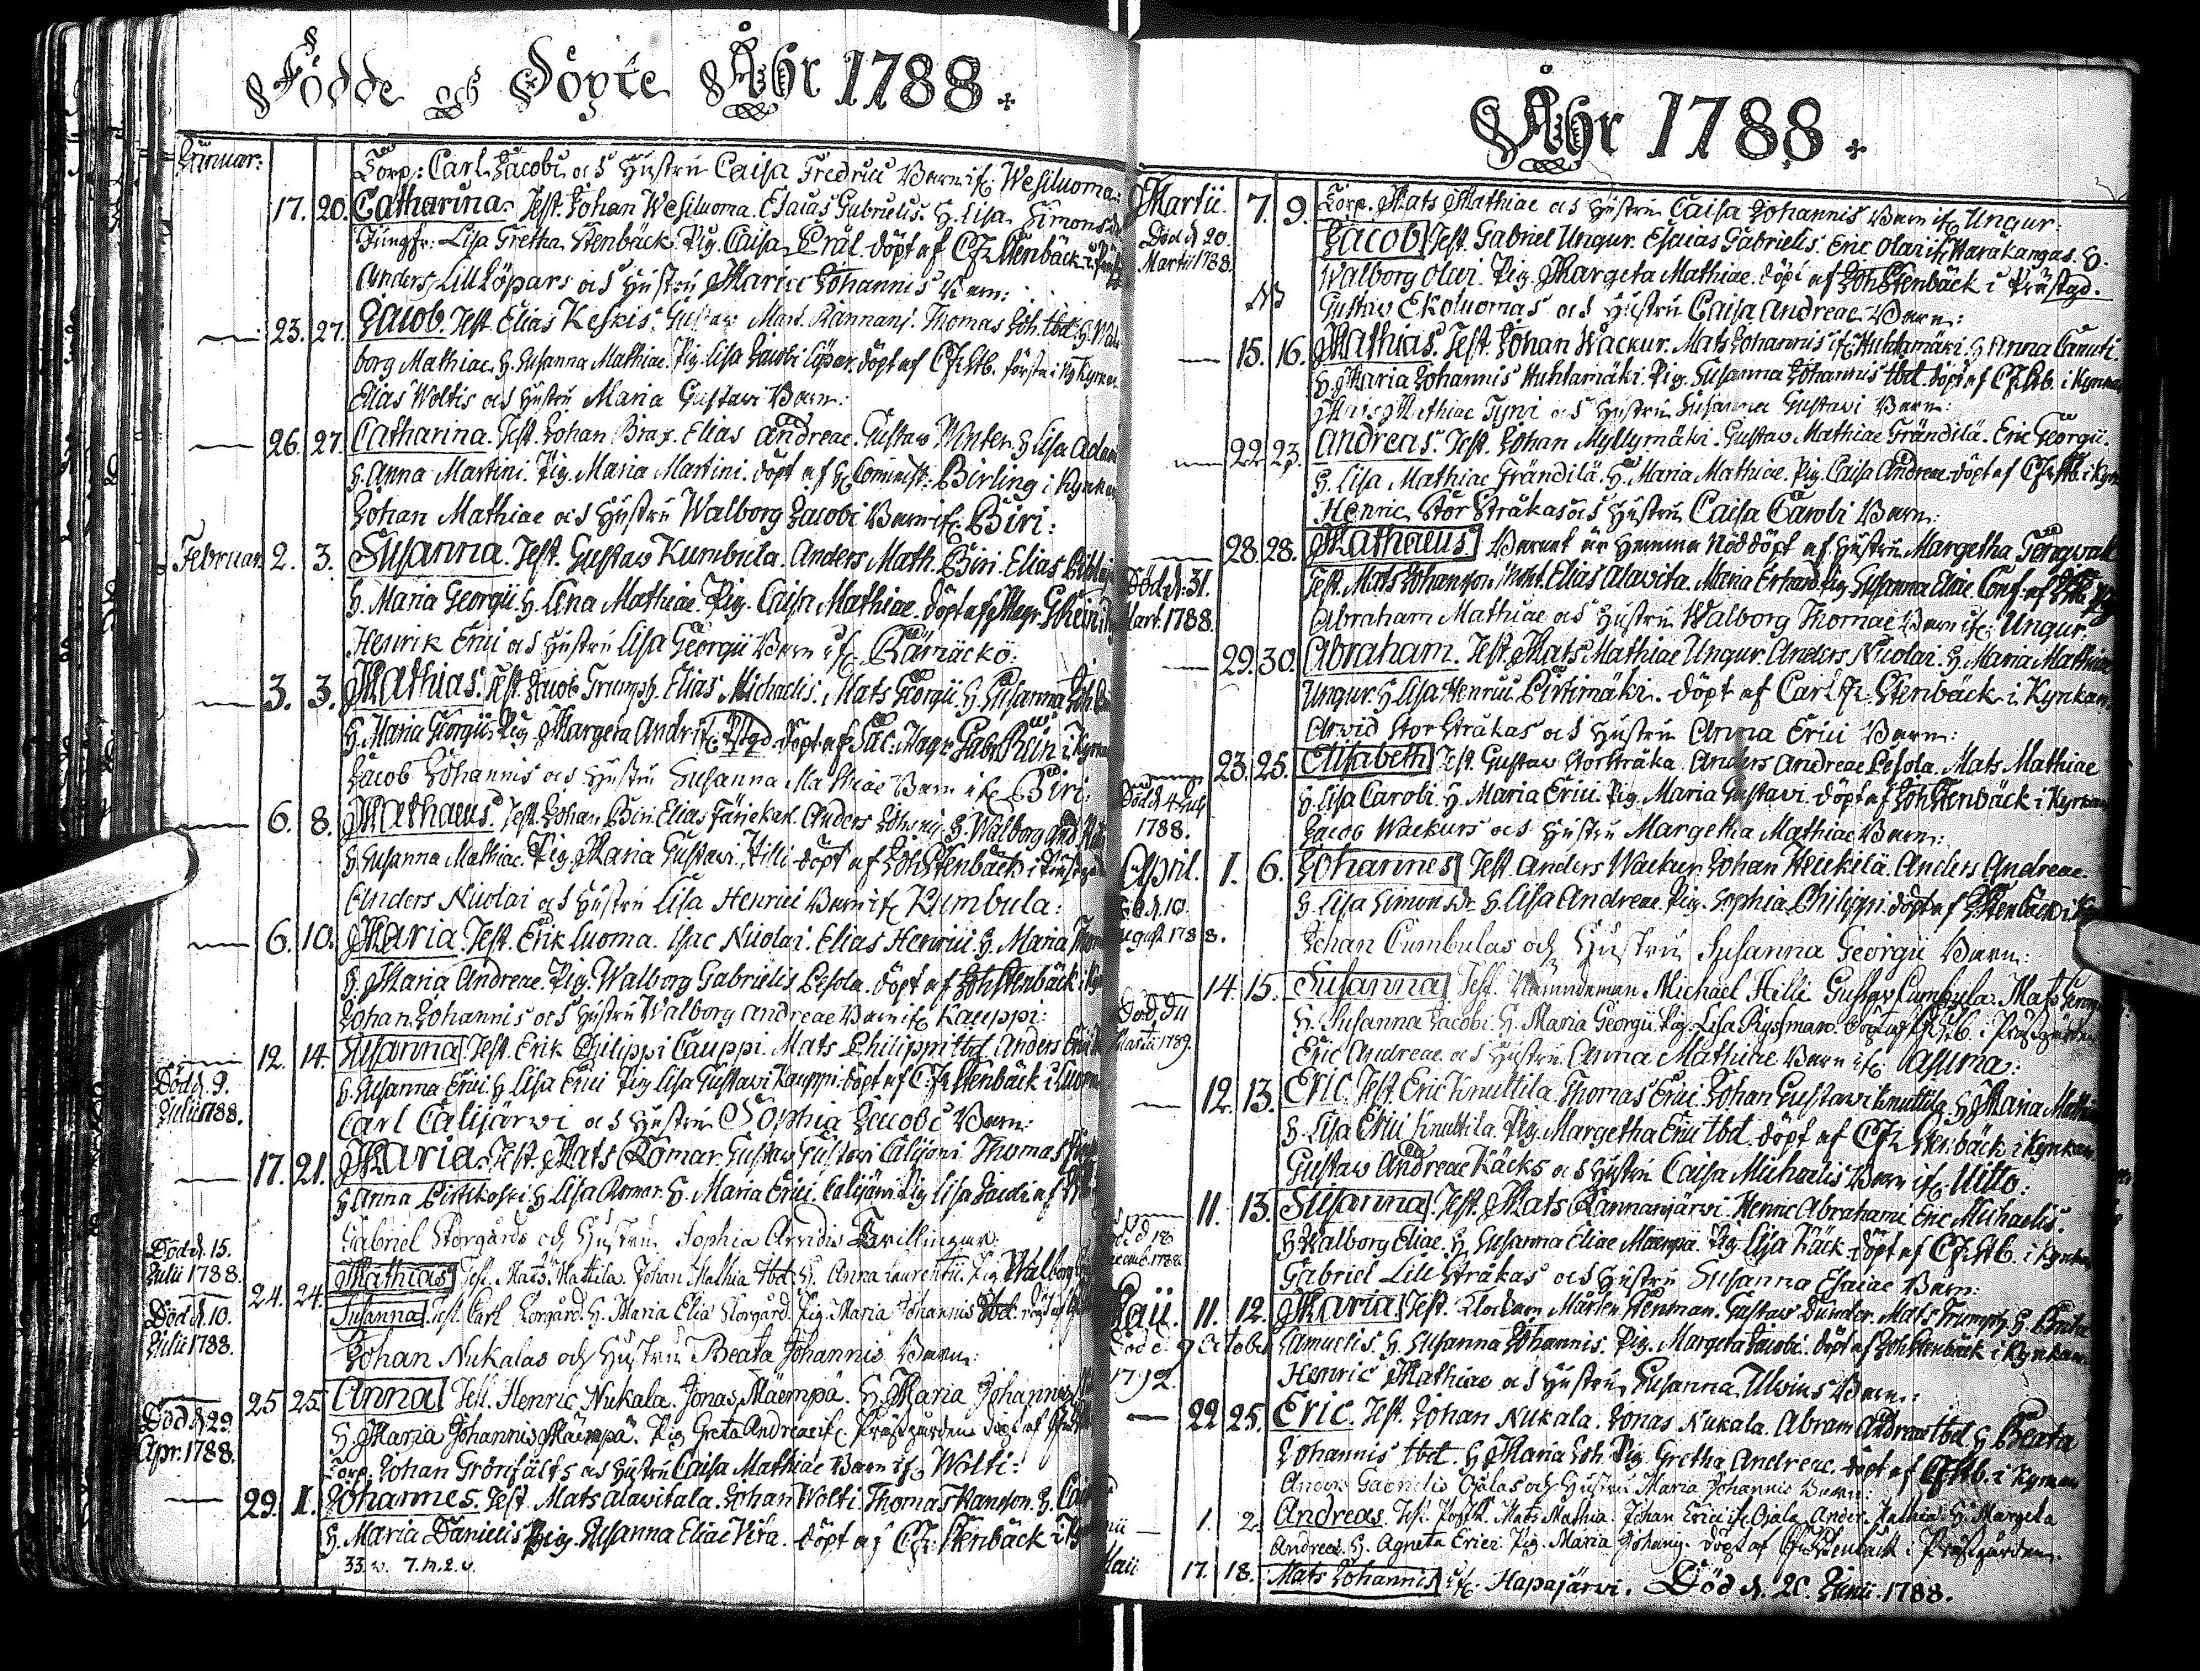 Födde och Döpte Åhr 1788.
Januar:
Torp: Carl Jacobi och Hustru Caisa Fredrici Barn if: Wesiluoma:
17. 20. Catharina. Test. Johan Wesiluoma. Esaias Gabrielis. H. Lisa Simons
Jungfr: Lisa Gretha Stenbäck. Pig. Caisa Döpt af C.F. Stenbäck i
Anders Lill Löpars och Hustru Maria Johannis Barn:
23. 27. Jacob. Test. Elias Keskis. Gustav Mart. Rannanj. Thomas Joh. ibd. H. Wal
borg Mathiae. H. Susanna Mathiae. Pig. Lisa Jacobi Löpar. döpt af C.F. Stb. första i Kyrkan
Elias Woltis och Hustru Maria Gustavi Barn:
26. 27. Catharina. Test. Johan Brax. Elias Andreae. Gustav Winter. H Lisa Adam
H. Anna Martini. Pig. Maria Martini. döpt af H Comminist: Birling i Kyrkan
Johan Mathiae och Hustru Walborg Jacobi Barn if: Biri:
Februar. 2. 3. Susanna. Test. Gustav Kumbula. Anders Math. Biri. Elias
H. Maria Georgii. H. Lena Mathiae. Pig. Caisa Mathiae. Döpt af Magr.
Henrik Erici och Hustru Lisa Georgii Barn if: Rämäckö:
3. 3. Mathias. Test. Jacob Trumph. Elias Michaelis. Mats Georgii. H. Susanna
H. Maria Georgii. Pig. Margeta Andr. if: Pstgd. Döpt af Sac: Magr: Gabr Rein i Kyrkan
Jacob Johannis och Hustru Susanna Mathiae Barn if: Biri:
6. 8. Mathaeus. Test. Johan Biri. Elias Fänjekar. Anders H. Walborg And.
H. Susanna Mathiae. Pig. Maria Gustavi. Hilli. döpt af Joh Stenbäck i Prästgd
Anders Nicolai och Hustru Lisa Henrici Barn if: Kumbula:
6. 10. Maria. Test. Erik Luoma. Isac Nicolai. Elias Henrici. H. Maria Thom
H. Maria Andreae. Pig. Walborg Gabrielis Pesola. döpt af Joh Stenbäck i
Johan Johannis och Hustru Walborg Andreae Barn if: Kauppi:
12. 14. Susanna. Test. Erik Philippi Cauppi. Mats Philippi ibd. Anders Erici
Död d. 9.
Julii 1788.
H. Susanna Erici. H. Lisa Erici Pig. Lisa Gustavi Kauppi. döpt af C.F. Stenbäck i Luoma
Carl Calijärvi och Hustru Sophia Jacobi Barn:
17. 21. Maria. Test. Mats Romar. Gustav Gustavi Calijärvi. Thomas
H. Anna Pirttikoski. H Lisa Romar. H. Maria Erici. Calijärvi Pig. Lisa Jacobi af
Gabriel Storgårds och Hustru Sophia Arvidis Tvillingar.
Död d. 15.
Julii 1788.
24. 24. Mathias. Test. Mats Mattila. Johan Mathiae ibd. H. Anna Laurentii. Pig. Walborg
Död d. 10.
Julii 1788.
Susanna. Test. Carl Storgård. H. Maria Eliae Storgård. Pig. Maria Johannis ibd. döpt af
Johan Nukalas och Hustru Beata Johannis Barn:
25. 25. Anna. Test. Henric Nukala. Jonas Mäenpä. H. Maria Johannis
Död d 29
Apr. 1788.
H Maria Johannis Mäenpä. Pig. Greta Andreae if: Prästgården. döpt af
Torp. Johan Grönfälts och Hustru Caisa Mathiae Barn if: Wolti:
29. 1. Johannes. Test. Mats Alavitala. Johan Wolti. Thomas Hanson. H. Cai
H. Maria Danielis. Pig. Susanna Eliae Vira. döpt af C.F. Stenbäck i
33. v. 7. n. 2. v.
Åhr 1788.
Martii. 7. 9. Torp. Mats Mathiae och Hustru Caisa Johannis Barn if: Ungur:
Död d 20.
Martii 1788.
Jacob. Test. Gabriel Ungur. Esaias Gabrielis. Eric Olai if: Harakangas. H.
Walborg Olai. Pig. Margeta Mathiae. döpt af Joh Stenbäck i Prästgd.
NB Gustav Ekoluomas och Hustru Caisa Andreae Barn:
15. 16. Mathias. Test. Johan Wackur. Mats Johannis if: Huhtamäki. H Anna Canuti.
H. Maria Johannis Huhtamäki. Pig. Susanna Johannis ibd. döpt af C.F. Stb. i Kyrkan
Mats Mathiae Tyni och Hustru Susanna Gustavi Barn:
22. 23. Andreas. Test. Johan Myllymäki. Gustav Mathiae Frändilä. Eric Georgii.
H. Lisa Mathiae Frändilä. H. Maria Mathiae. Pig. Caisa Andreae. döpt af C.F. Stb. i Kyrk
Henric Stor Stråkas och Hustru Caisa Caroli Barn:
28. 28. Mathaeus. Barnet är hemma Nöddöpt af Hustru Margetha Tengwall
Död d. 31.
Mart. 1788.
Test. Mats Johanson Elias Alavita. Maria Erhard. Pig. Susanna Eliae. Conf. af
Abraham Mathiae och Hustru Walborg Thomae Barn if: Ungur:
29. 30. Abraham. Test. Mats Mathiae Ungur. Anders Nicolai. H. Maria Mathiae
Ungur. H. Lisa Henrici Pirttimäki. döpt af Carl Fr. Stenbäck i Kyrkan
Arvid Stor Stråkas och Hustru Anna Erici Barn:
23. 25. Elisabeth. Test. Gustav Storstråka. Anders Andreae Pesola. Mats Mathiae
Död d 4 July
1788.
H. Lisa Caroli. H. Maria Erici. Pig. Maria Gustavi. döpt af Joh Stenbäck i Kyrkan
Jacob Wackurs och Hustru Margetha Mathiae Barn:
April. 1. 6. Johannes. Test. Anders Wackur. Johan Heickilä. Anders Andreae.
Död d. 10.
August. 1788.
H. Lisa Simonsdr. H. Lisa Andreae. Pig. Sophia Philippi. döpt af Stenbäck i
Johan Cumbulas och Hustru Susanna Georgii Barn:
14. 15. Susanna. Test. Nämndeman Michael Hilli. Gustav Cumbula. Mats
Död d 11
Martii 1789.
H. Susanna Jacobi. H. Maria Georgii. Pig. Lisa döpt af C.F. Stb. i Prästgården
Eric Andreae och Hustru Anna Mathiae Barn if: Lassuma:
12. 13. Eric. Test. Eric Knuttila. Thomas Erici. Johan Gustavi Knuttila. H. Maria Mathiae
H. Lisa Erici Knuttila. Pig. Margetha Erici ibd. döpt af C.F. Stenbäck i Kyrkan
Gustav Andreae Käcks och Hustru Caisa Michaelis Barn if: Uitto:
11. 13. Susanna. Test. Mats Rannanjärvi. Henric Abrahami. Eric Michaelis.
Död d 18
Decemb. 1788.
H Walborg Eliae. H. Susanna Eliae Mäenpä. Pig. Lisa Käck. döpt af C.F. Stb. i Kyrkan
Gabriel Lill Stråkas och Hustru Susanna Esaiae Barn:
Maii. 11. 12. Maria. Test. Klockarn Mårten Stenman. Gustav Dunder. Mats Trumph. H. Brita
Död d. 9 October
1792.
Samuelis. H. Susanna Johannis. Pig. Margeta Jacobi. döpt af Joh Stenbäck i Kyrkan
Henric Mathiae och Hustru Susanna Ulvins Barn:
22 25. Eric. Test. Johan Nukala. Jonas Nukala. Abram Andreae ibd. H Beata
Johannis ibd. H Maria Joh. Pig. Gretha Andreae. döpt af C.F. Stb. i Kyrkan
Anders Gabrielis Ojalas och Hustru Maria Johannis Barn:
1. 2. Andreas. Test. Mats Mathiae. Johan Erici if: Ojala. Ander. Mathiae. H. Margeta
Andreae. H. Agneta Erici. Pig. Maria Johannis. döpt af C.F. Stenbäck i Prästgården.
Maii 17. 18. Mats Johannis if: Hapajärvi. Död d. 20 Junii. 1788.